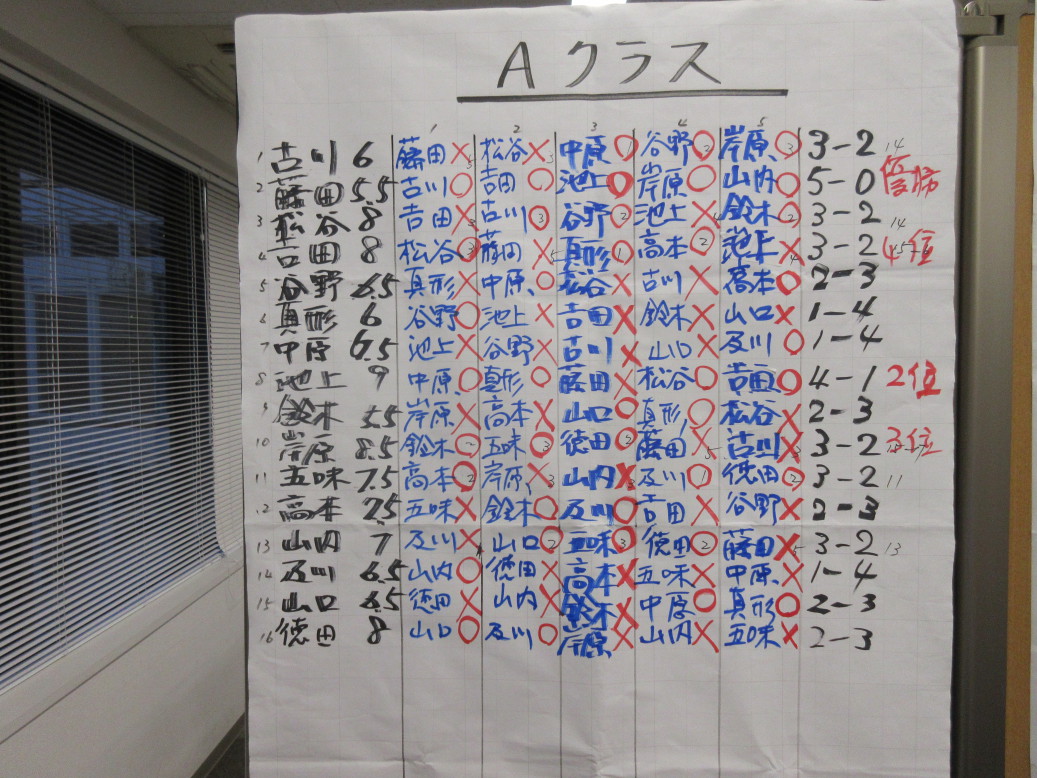 Aクラス
1 2 3 4 5
1 古川 6 藤田 × 5 松谷 × 3 中原 ○ 谷野 ○ 2 岸原 ○ 3 3-2 14
2 藤田 5.5 古川 ○ 吉田 ○ 池上 ○ 岸原 ○ 山内 ○ 5-0 優勝
3 松谷 8 吉田 × 3 古川 ○ 3 谷野 ○ 2 池上 × 鈴木 ○ 2 3-2 14
4 吉田 8 松谷 ○ 3 藤田 × 5 真形 ○ 1 高本 ○ 2 池上 × 4 3-2 4位
5 谷野 6.5 真形 × 中原 ○ 松谷 × 古川 × 高本 ○ 2-3
6 真形 6 谷野 ○ 池上 × 吉田 × 鈴木 × 山口 × 1-4
7 中原 6.5 池上 × 谷野 × 古川 × 山口 × 及川 ○ 1-4
8 池上 9 中原 ○ 真形 ○ 藤田 × 松谷 ○ 吉田 ○ 4-1 2位
9 鈴木 5.5 岸原 × 高本 × 山口 ○ 真形 ○ 松谷 × 2-3
10 岸原 8.5 鈴木 ○ 2 五味 ○ 3 徳田 ○ 2 藤田 × 5 古川 × 3 3-2 3位
11 五味 7.5 高本 ○ 2 岸原 × 3 山内 × 3 及川 ○ 1 徳田 ○ 2 3-2 11
12 高本 7.5 五味 × 鈴木 ○ 及川 ○ 吉田 × 谷野 × 2-3
13 山内 7 及川 × 1 山口 ○ 2 五味 ○ 3 徳田 ○ 2 藤田 × 5 3-2 13
14 及川 6.5 山内 ○ 徳田 × 高本 × 五味 × 中原 × 1-4
15 山口 6.5 徳田 × 山内 × 鈴木 × 中原 ○ 真形 ○ 2-3
16 徳田 8 山口 ○ 及川 ○ 岸原 × 山内 × 五味 × 2-3